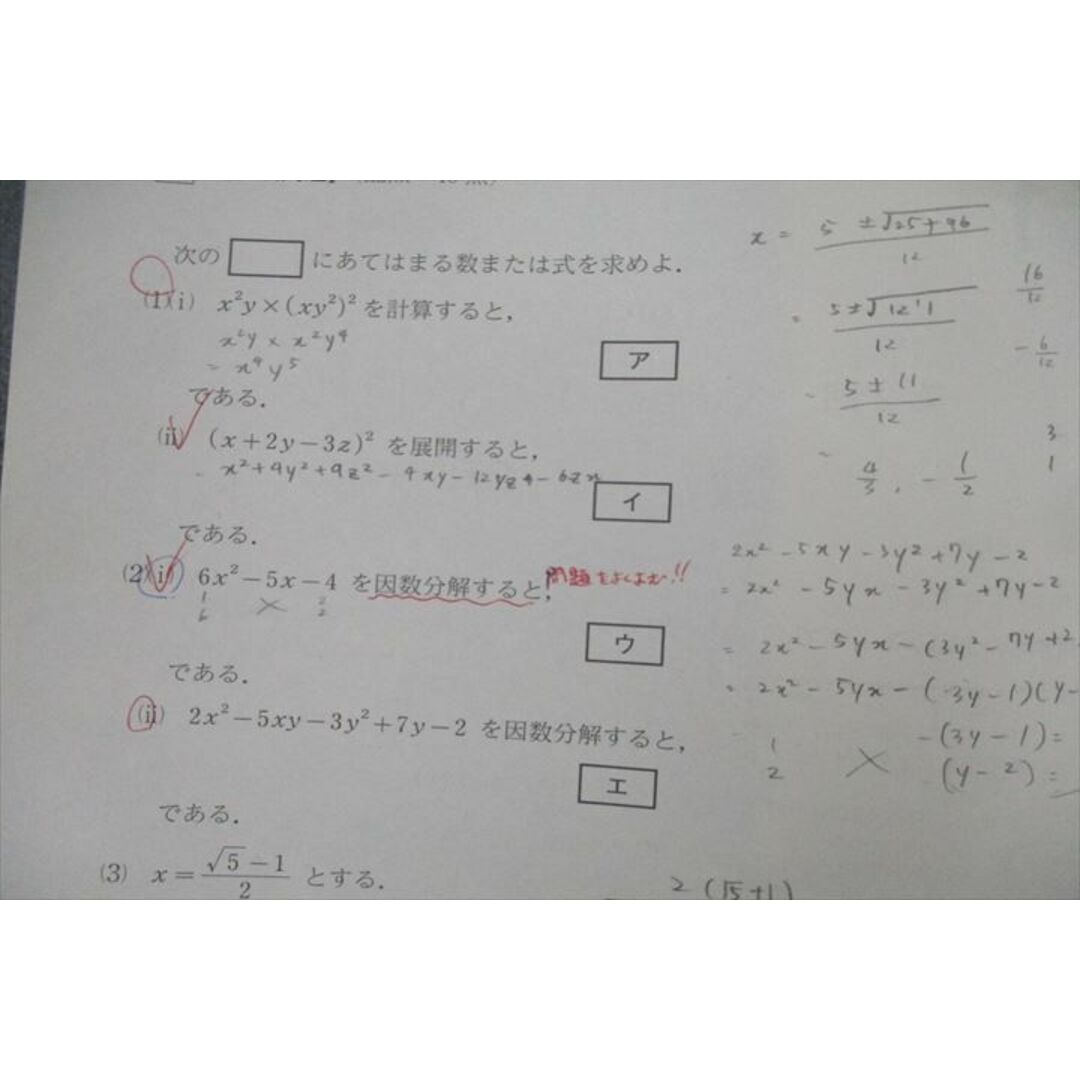 次の　　　にあてはまる数または式を求めよ.
(1)(i) x²y×(xy²)² を計算すると,
x²y × x²y⁴
= x⁴y⁵
ア
である.
(ii) (x+2y−3z)² を展開すると,
x²+4y²+9z²−4xy−12yz
イ
である.
(2)(i) 6x²−5x−4 を因数分解すると, 問題をよくよむ!!
1
6
2
2
ウ
である.
(ii) 2x²−5xy−3y²+7y−2 を因数分解すると,
エ
である.
(3) x=(√5−1)/2 とする.
x = (5 ±√25+96)/12
(5±√121)/12
(5 ± 11)/12
4/3, −1/2
16/12
−6/12
3
1
2x²−5xy−3y²+7y−2
= 2x²−5yx−3y²+7y−2
= 2x²−5yx−(3y²−7y+2
= 2x²−5yx−(3y−1)(y−
1
2
−(3y−1)=
(y−2)=
2(√5+1)